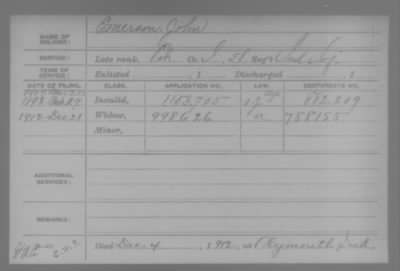 Emerson, John
NAME OF SOLDIER:
SERVICE: Late rank, Co. I, 58, Reg't Ind Inf.
TERM OF SERVICE: Enlisted , 1 Discharged , 1
DATE OF FILING. CLASS. APPLICATION NO. LAW. CERTIFICATE NO.
Invalid, 1153,705 882.209
1912 Dec 21 Widow, 998626 a 758155
Minor,
ADDITIONAL SERVICES:
REMARKS:
Died Dec. 4, 1912, at Plymouth, Ind.